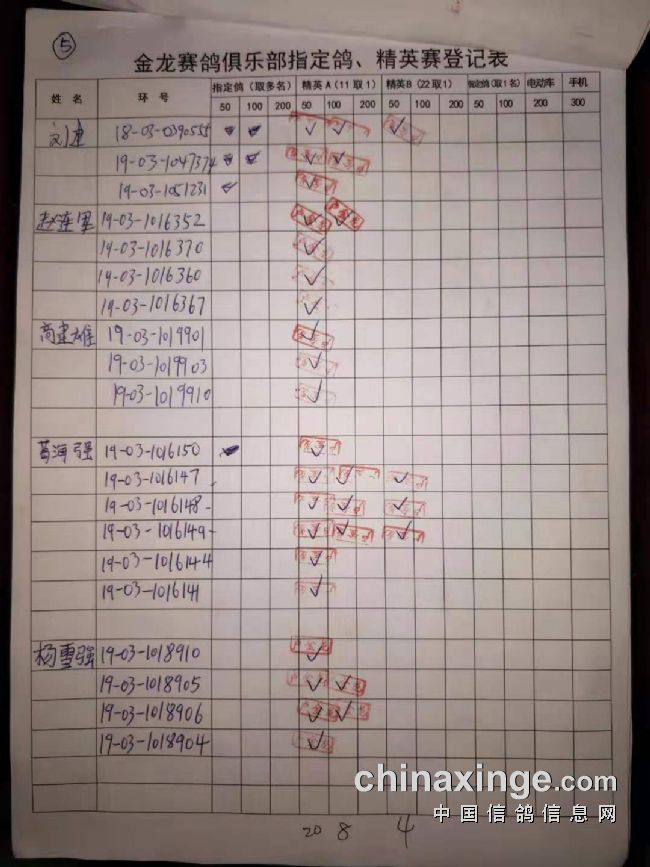 ⑤
金龙赛鸽俱乐部指定鸽、精英赛登记表
姓 名 环 号 指定鸽（取多名） 精英A（11取1） 精英B（22取1） 指定鸽（取1名） 电动车 手机
50 100 200 50 100 200 50 100 200 50 100 200 200 300
刘建 18-03-0390555 ✓ ✓ ✓ ✓ ✓
19-03-1047374 ✓ ✓ ✓ ✓
19-03-1051231 ✓ ✓
赵连军 19-03-1016352 ✓ ✓
19-03-1016370 ✓
19-03-1016360 ✓
19-03-1016367 ✓
商建雄 19-03-1019901 ✓
19-03-1019903 ✓
19-03-1019910 ✓
葛海强 19-03-1016150 ✓
19-03-1016147 ✓ ✓ ✓
19-03-1016148 ✓ ✓ ✓
19-03-1016149 ✓ ✓ ✓
19-03-1016144 ✓
19-03-1016141 ✓
杨雪强 19-03-1018910 ✓
19-03-1018905 ✓ ✓
19-03-1018906 ✓ ✓
19-03-1018904 ✓
20 8 4
chinaxinge.com
中国信鸽信息网